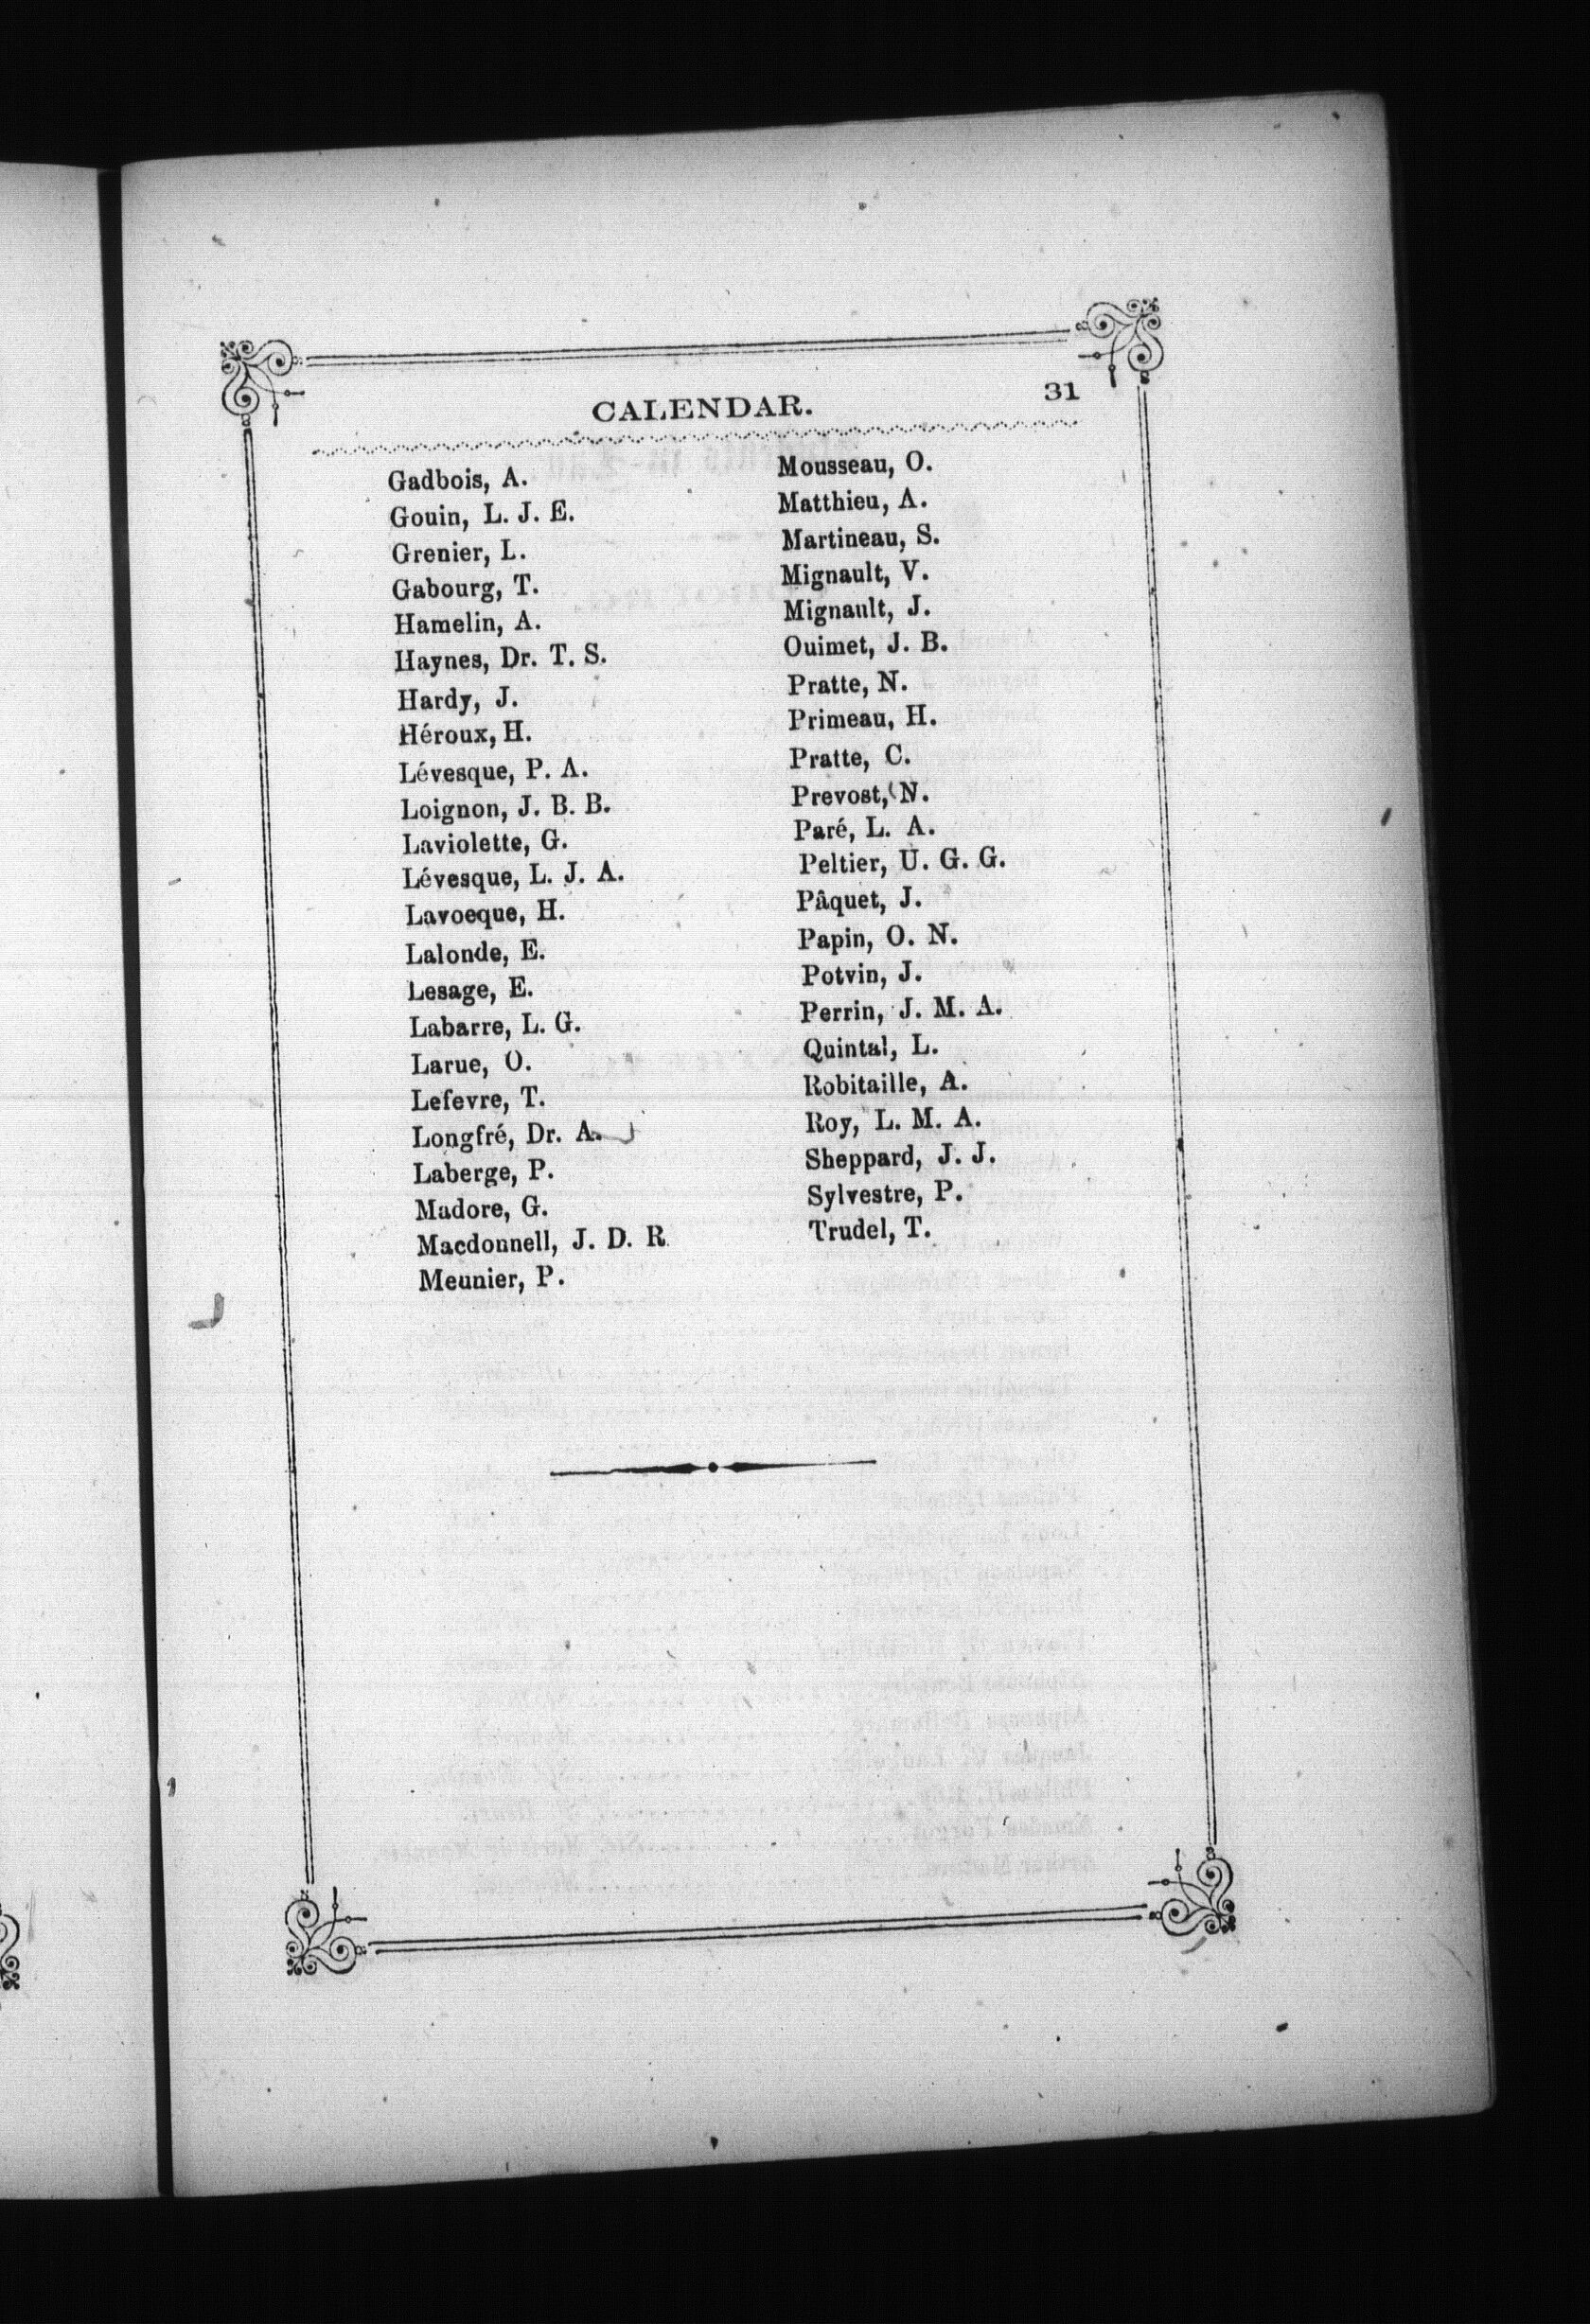 CALENDAR. 31
Gadbois, A.
Gouin, L. J. E.
Grenier, L.
Gabourg, T.
Hamelin, A.
Haynes, Dr. T. S.
Hardy, J.
Héroux, H.
Lévesque, P. A.
Loignon, J. B. B.
Laviolette, G.
Lévesque, L. J. A.
Lavoeque, H.
Lalonde, E.
Lesage, E.
Labarre, L. G.
Larue, O.
Lefevre, T.
Longfré, Dr. A.
Laberge, P.
Madore, G.
Macdonnell, J. D. R
Meunier, P.
Mousseau, O.
Matthieu, A.
Martineau, S.
Mignault, V.
Mignault, J.
Ouimet, J. B.
Pratte, N.
Primeau, H.
Pratte, C.
Prevost, N.
Paré, L. A.
Peltier, U. G. G.
Pâquet, J.
Papin, O. N.
Potvin, J.
Perrin, J. M. A.
Quintal, L.
Robitaille, A.
Roy, L. M. A.
Sheppard, J. J.
Sylvestre, P.
Trudel, T.